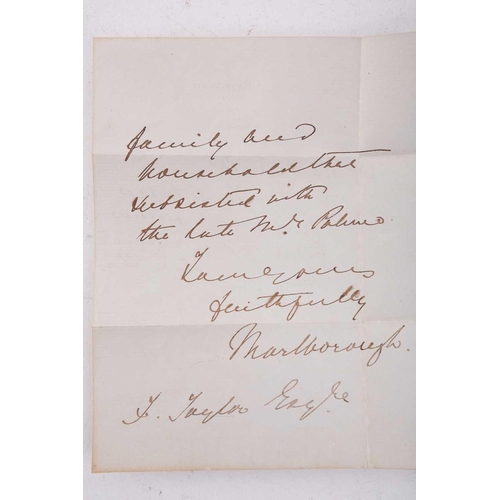 family and
household that
subsisted with
the late Mr. Palmer.
I am yours
faithfully
Marlborough.
F. Taylor Esqre